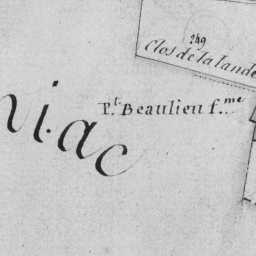 249
Clos de la lande
P.t Beaulieu f.me
niac